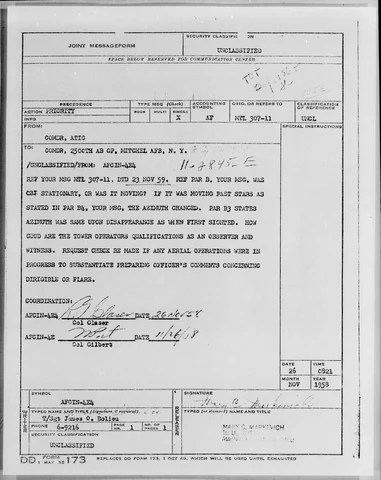 JOINT MESSAGEFORM
SECURITY CLASSIFICATION
UNCLASSIFIED
SPACE BELOW RESERVED FOR COMMUNICATION CENTER
PRECEDENCE
TYPE MSG (Check)
ACCOUNTING SYMBOL
ORIG. OR REFERS TO
CLASSIFICATION OF REFERENCE
ACTION PRIORITY
BOOK MULTI SINGLE
X
AF
MTL 307-11
UNCL
INFO
FROM:
SPECIAL INSTRUCTIONS
COMDR, ATIC
TO:
COMDR, 2500TH AB GP, MITCHEL AFB, N. Y.
/UNCLASSIFIED/FROM: AFOIN-4E4
11-2845-E
REF YOUR MSG MTL 307-11, DTD 23 NOV 59. REF PAR B, YOUR MSG, WAS
OBJ STATIONARY, OR WAS IT MOVING? IF IT WAS MOVING PAST STARS AS
STATED IN PAR B4, YOUR MSG, THE AZIMUTH CHANGED. PAR B3 STATES
AZIMUTH WAS SAME UPON DISAPPEARANCE AS WHEN FIRST SIGHTED. HOW
GOOD ARE THE TOWER OPERATORS QUALIFICATIONS AS AN OBSERVER AND
WITNESS. REQUEST CHECK BE MADE IF ANY AERIAL OPERATIONS WERE IN
PROGRESS TO SUBSTANTIATE PREPARING OFFICER'S COMMENTS CONCERNING
DIRIGIBLE OR FLARE.
COORDINATION:
AFOIN-4E4 DATE 26 Nov 58
Col Glaser
AFOIN-4E DATE 11/26/58
Col Gilbert
DATE TIME
26 0821
MONTH YEAR
NOV 1958
SYMBOL
AFOIN-4E4
SIGNATURE
TYPED NAME AND TITLE (Signature, if required)
T/Sgt James O. Bolieu
TYPED (or stamped) NAME AND TITLE
PHONE 6-9216 PAGE NR. 1 NR. OF PAGES 1
MARY C. MARKEVICH
SECURITY CLASSIFICATION
UNCLASSIFIED
DD FORM 1 MAY 55 173 REPLACES DD FORM 173, 1 OCT 49, WHICH WILL BE USED UNTIL EXHAUSTED